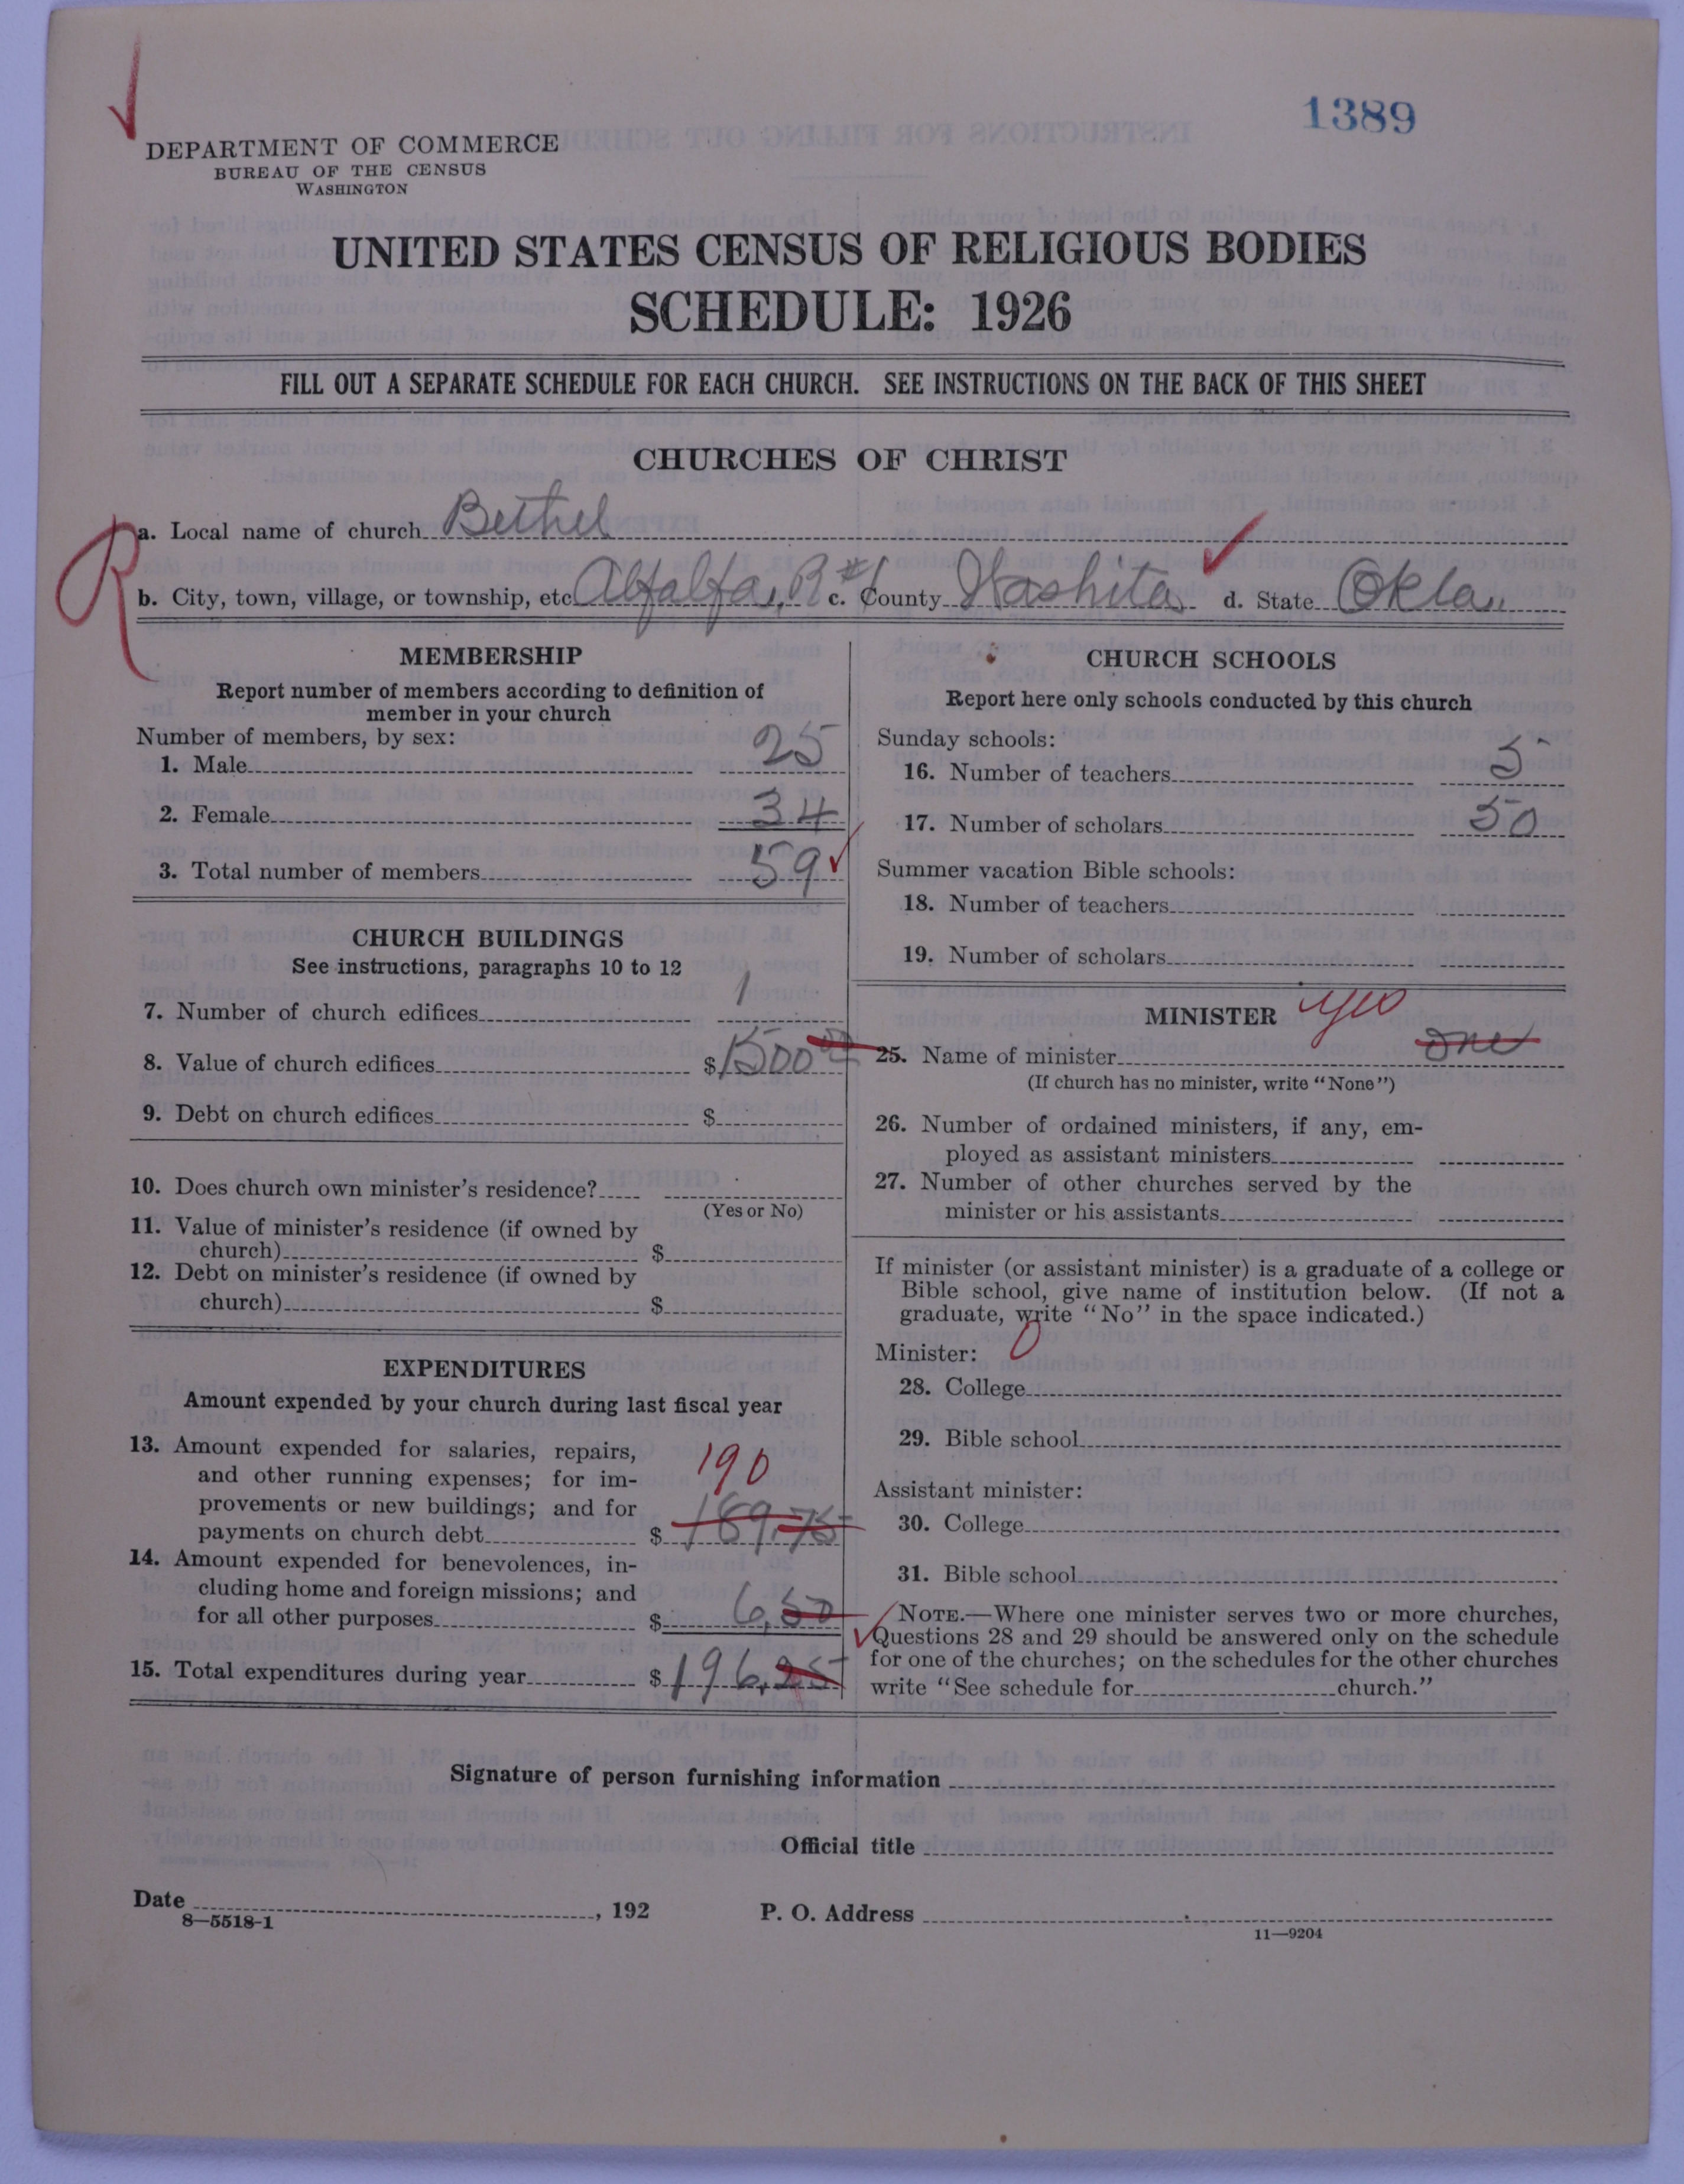 1389
DEPARTMENT OF COMMERCE
BUREAU OF THE CENSUS
WASHINGTON
UNITED STATES CENSUS OF RELIGIOUS BODIES
SCHEDULE: 1926
FILL OUT A SEPARATE SCHEDULE FOR EACH CHURCH. SEE INSTRUCTIONS ON THE BACK OF THIS SHEET
CHURCHES OF CHRIST
R
a. Local name of church Bethel
b. City, town, village, or township, etc. Alfalfa, R#1 c. County Washita d. State Okla.
MEMBERSHIP
Report number of members according to definition of
member in your church
Number of members, by sex:
1. Male 25
2. Female 34
3. Total number of members 59
CHURCH BUILDINGS
See instructions, paragraphs 10 to 12
7. Number of church edifices 1
8. Value of church edifices $1500 00
9. Debt on church edifices $
10. Does church own minister's residence?
(Yes or No)
11. Value of minister's residence (if owned by
church) $
12. Debt on minister's residence (if owned by
church) $
EXPENDITURES
Amount expended by your church during last fiscal year
13. Amount expended for salaries, repairs,
and other running expenses; for im-
provements or new buildings; and for
payments on church debt $ 189.75
190
14. Amount expended for benevolences, in-
cluding home and foreign missions; and
for all other purposes $ 6,50
15. Total expenditures during year $196.25
CHURCH SCHOOLS
Report here only schools conducted by this church
Sunday schools:
16. Number of teachers 5
17. Number of scholars 50
Summer vacation Bible schools:
18. Number of teachers
19. Number of scholars
MINISTER yes
25. Name of minister one
(If church has no minister, write "None")
26. Number of ordained ministers, if any, em-
ployed as assistant ministers
27. Number of other churches served by the
minister or his assistants
If minister (or assistant minister) is a graduate of a college or
Bible school, give name of institution below. (If not a
graduate, write "No" in the space indicated.)
Minister: 0
28. College
29. Bible school
Assistant minister:
30. College
31. Bible school
NOTE.—Where one minister serves two or more churches,
Questions 28 and 29 should be answered only on the schedule
for one of the churches; on the schedules for the other churches
write "See schedule for church."
Signature of person furnishing information
Official title
Date , 192
P. O. Address
8—5518-1
11—9204